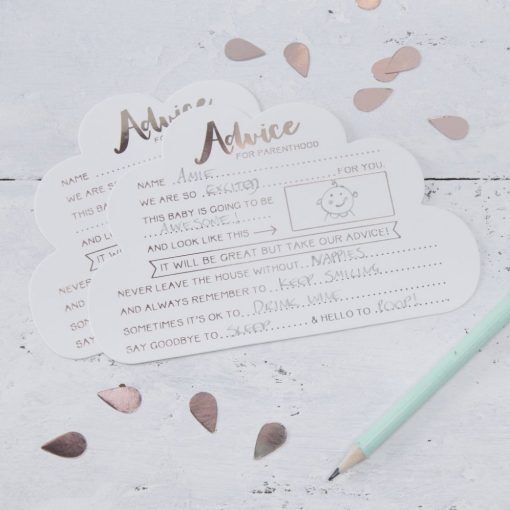 Advice
FOR
NAME
WE ARE SO
THIS BABY
AND LOOK
IT W
NEVER LE
AND ALWAYS
SOMETIMES
SAY GOODB
Advice
FOR PARENTHOOD
NAME AMIE
WE ARE SO EXCITED FOR YOU.
THIS BABY IS GOING TO BE
AWESOME!
AND LOOK LIKE THIS
IT WILL BE GREAT BUT TAKE OUR ADVICE!
NEVER LEAVE THE HOUSE WITHOUT NAPPIES
AND ALWAYS REMEMBER TO KEEP SMILING
SOMETIMES IT'S OK TO DRINK WINE
SAY GOODBYE TO SLEEP & HELLO TO POOP!